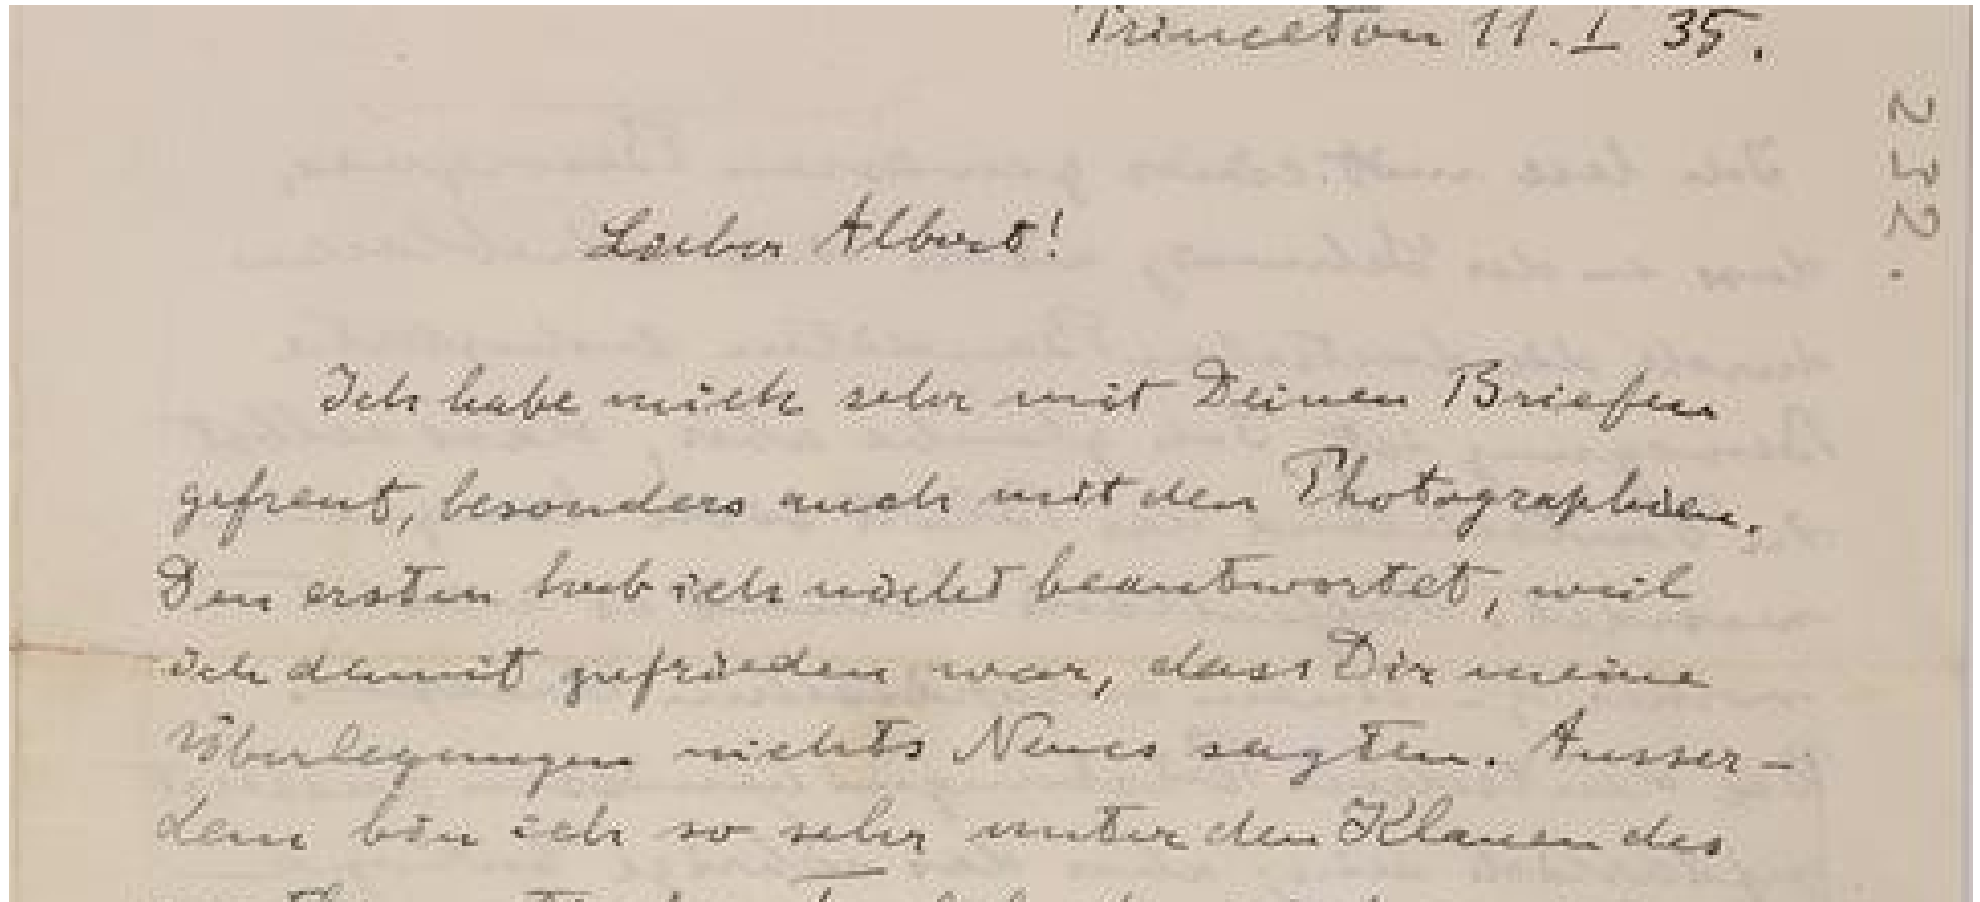 Princeton 11. I 35.
232.
Lieber Albert!
Ich habe mich sehr mit Deinen Briefen
gefreut, besonders auch mit den Photographien.
Den ersten hab ich nicht beantwortet, weil
ich damit zufrieden war, dass Dir meine
Überlegungen nichts Neues sagten. Ausser-
dem bin ich so sehr unter den Klauen des